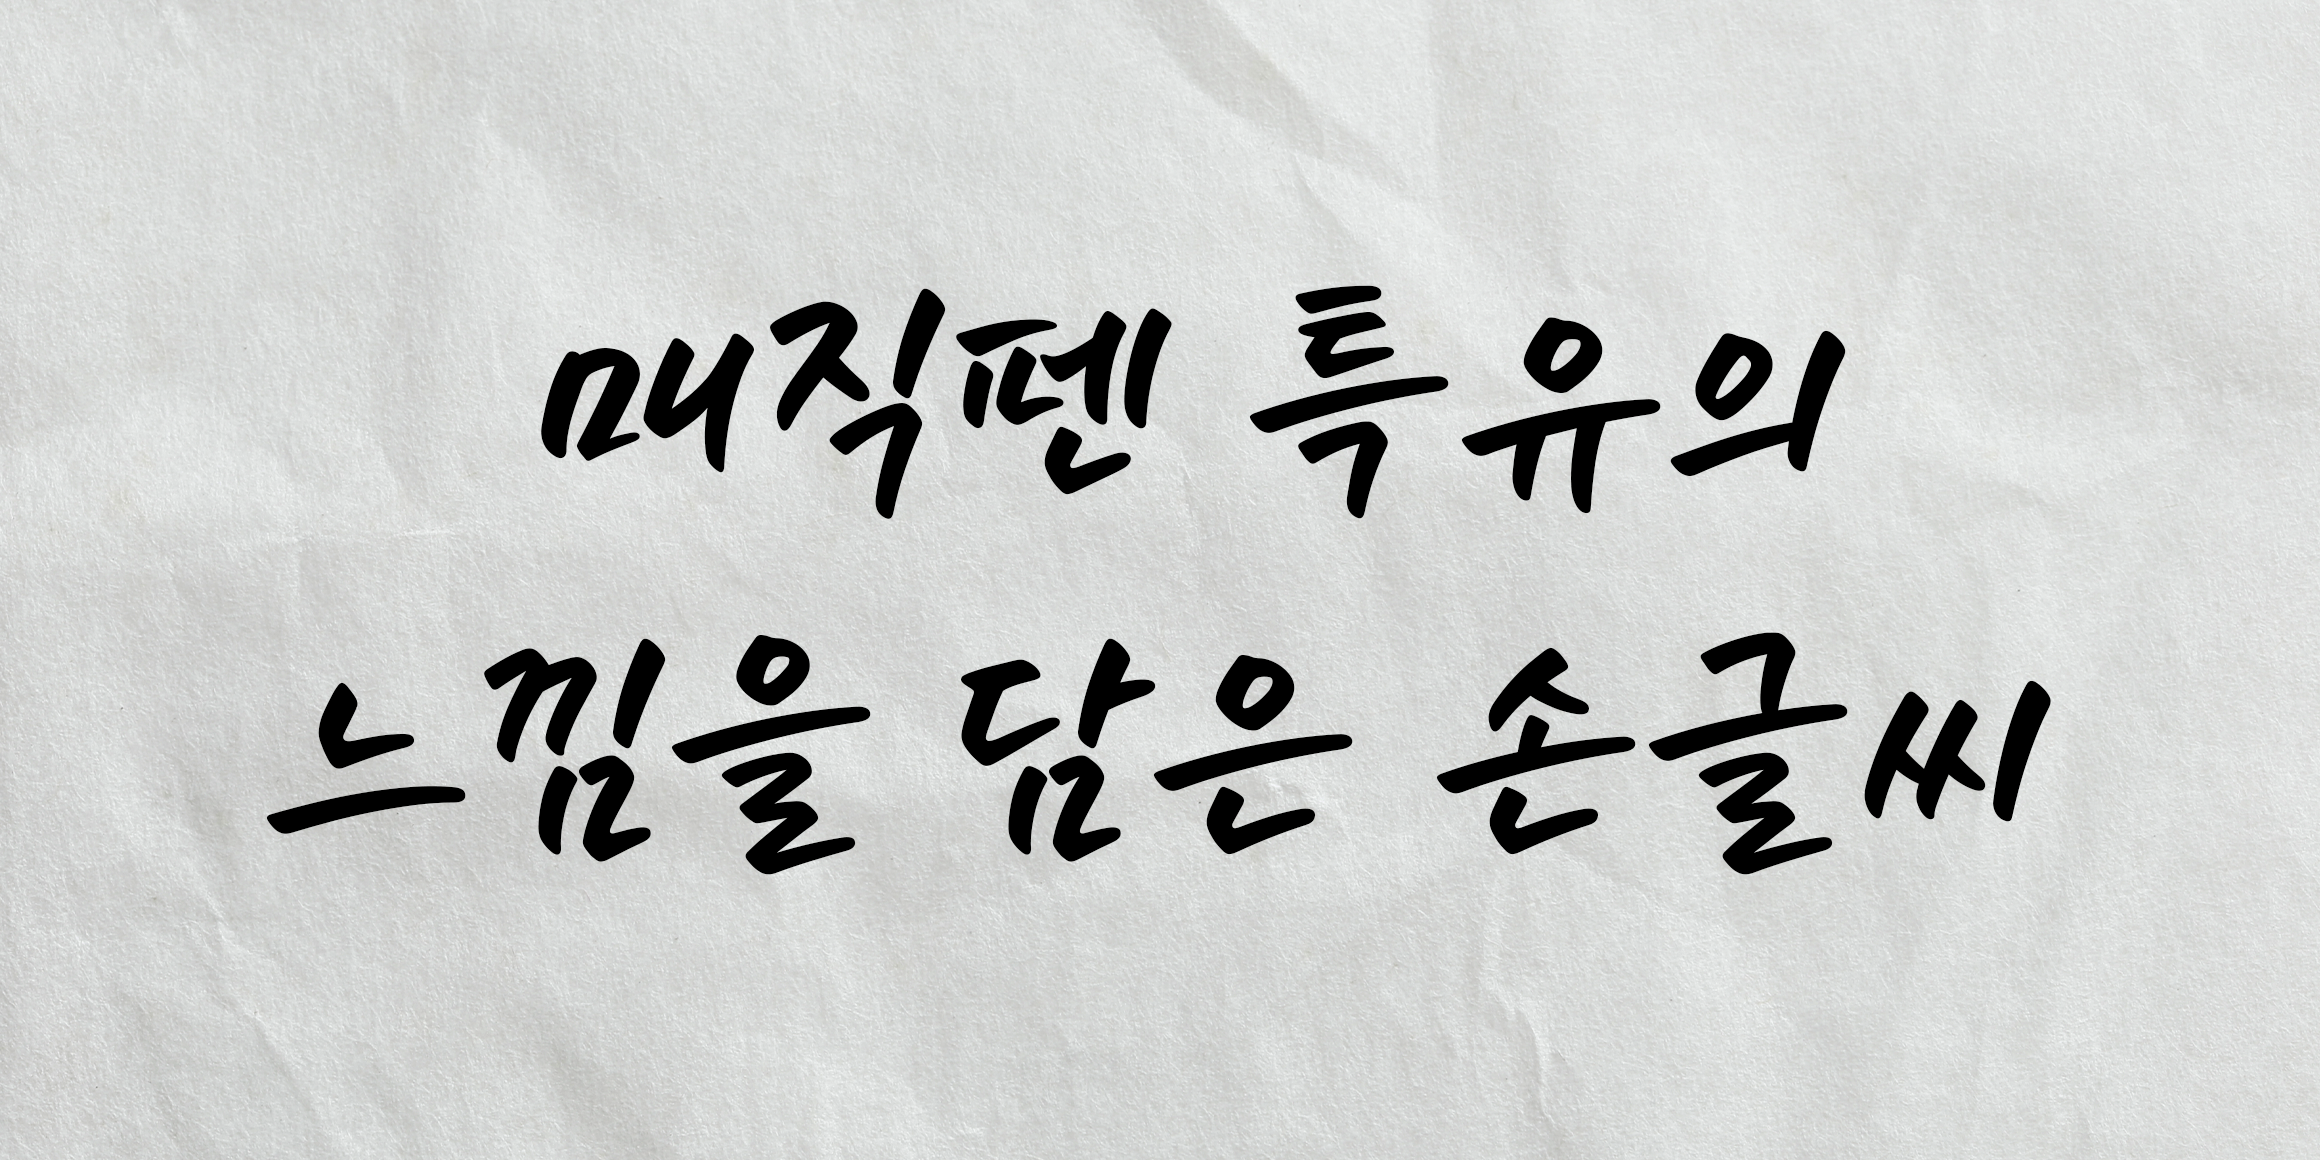 매직펜 특유의
느낌을 담은 손글씨